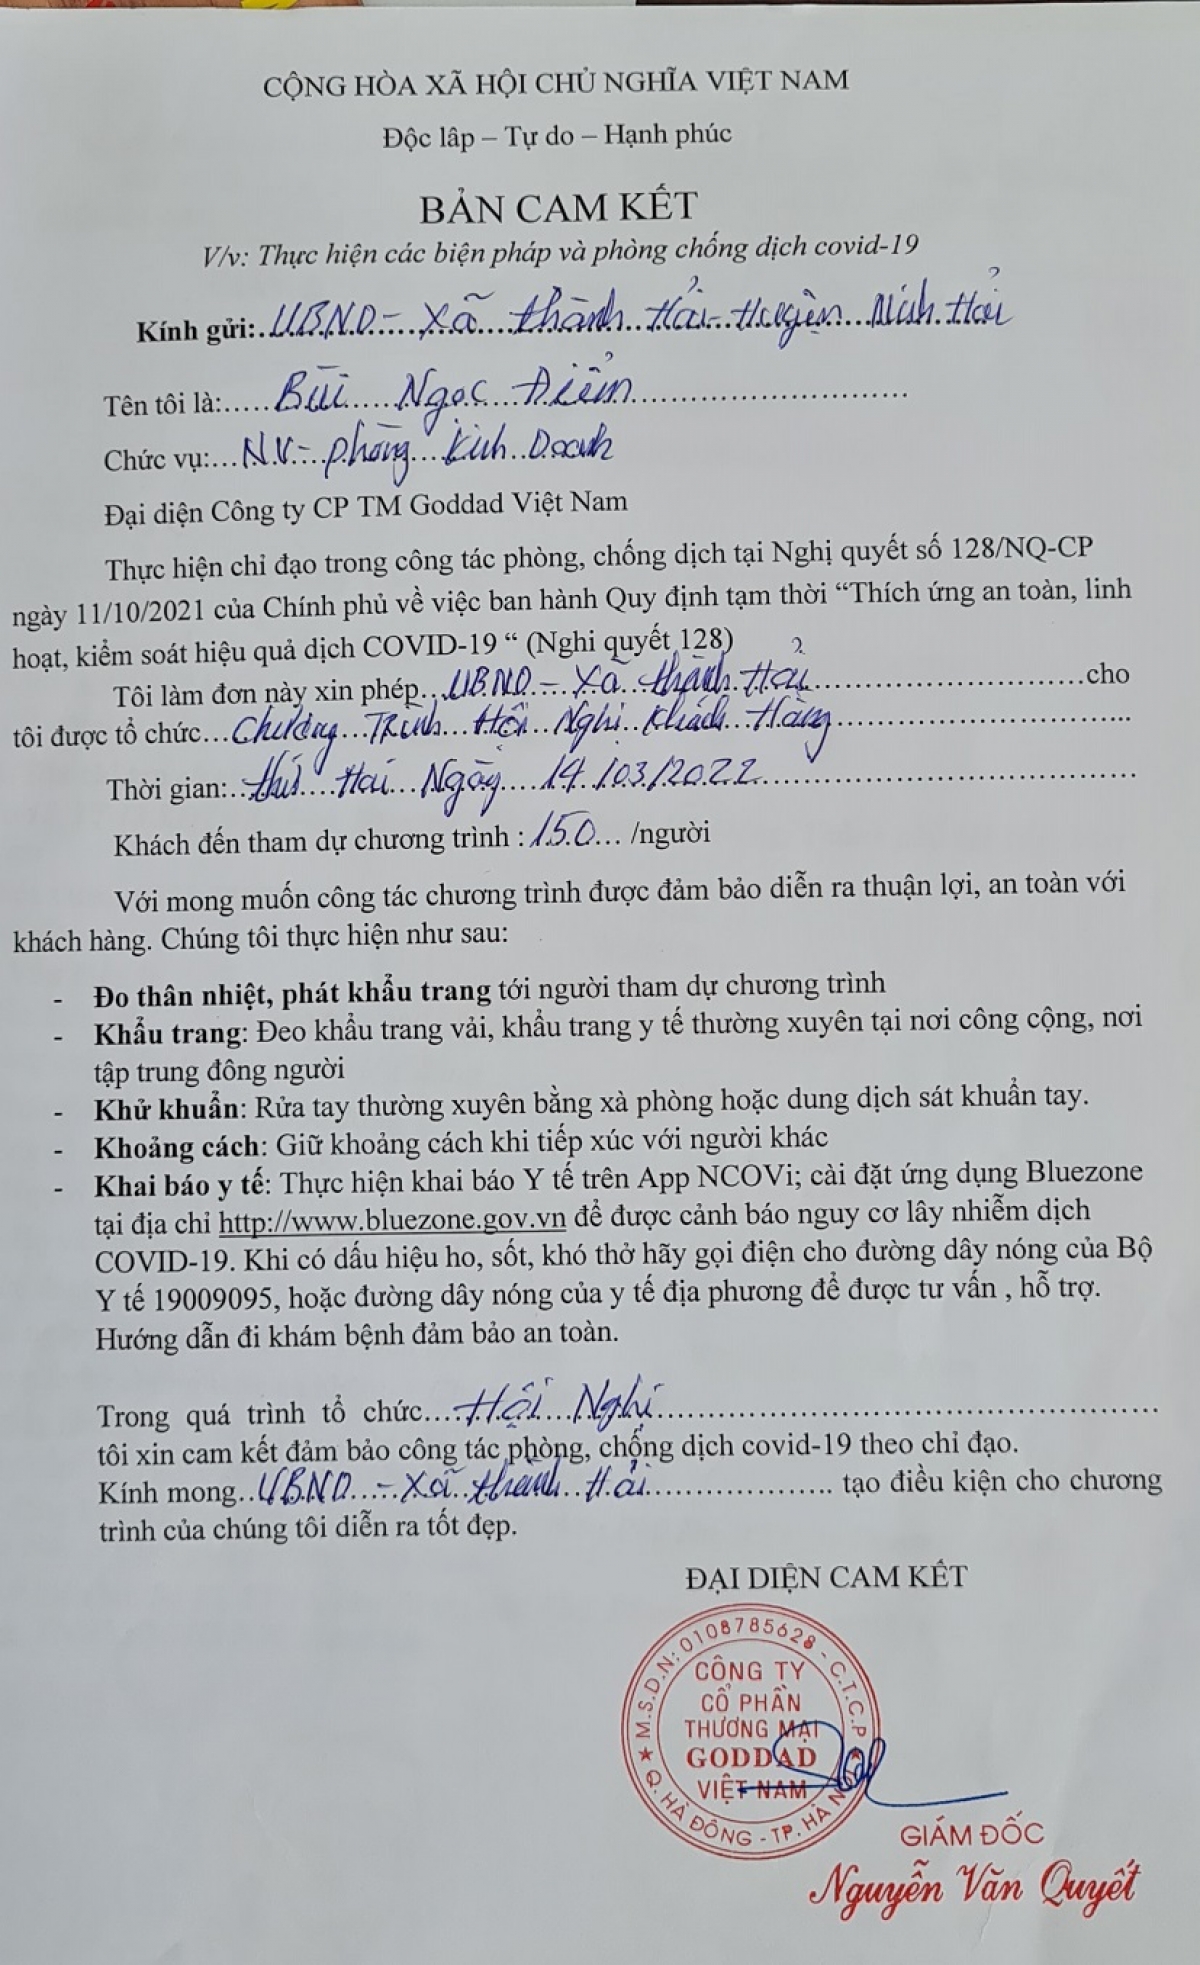 CỘNG HÒA XÃ HỘI CHỦ NGHĨA VIỆT NAM
Độc lâp – Tự do – Hạnh phúc
BẢN CAM KẾT
V/v: Thực hiện các biện pháp và phòng chống dịch covid-19
Kính gửi:.UBND - Xã Thành Hải - Huyện Ninh Hải
Tên tôi là:..... Bùi Ngọc Điểm
Chức vụ:... N.V - phòng Kinh Doanh
Đại diện Công ty CP TM Goddad Việt Nam
Thực hiện chỉ đạo trong công tác phòng, chống dịch tại Nghị quyết số 128/NQ-CP
ngày 11/10/2021 của Chính phủ về việc ban hành Quy định tạm thời “Thích ứng an toàn, linh
hoạt, kiểm soát hiệu quả dịch COVID-19 “ (Nghi quyết 128)
Tôi làm đơn này xin phép... UBND - Xã Thành Hải ... cho
tôi được tổ chức... Chương Trình Hội Nghị Khách Hàng ...
Thời gian:.. thứ Hai Ngày 14/03/2022 ...
Khách đến tham dự chương trình : 150... /người
Với mong muốn công tác chương trình được đảm bảo diễn ra thuận lợi, an toàn với
khách hàng. Chúng tôi thực hiện như sau:
- Đo thân nhiệt, phát khẩu trang tới người tham dự chương trình
- Khẩu trang: Đeo khẩu trang vải, khẩu trang y tế thường xuyên tại nơi công cộng, nơi
tập trung đông người
- Khử khuẩn: Rửa tay thường xuyên bằng xà phòng hoặc dung dịch sát khuẩn tay.
- Khoảng cách: Giữ khoảng cách khi tiếp xúc với người khác
- Khai báo y tế: Thực hiện khai báo Y tế trên App NCOVi; cài đặt ứng dụng Bluezone
tại địa chỉ http://www.bluezone.gov.vn để được cảnh báo nguy cơ lây nhiễm dịch
COVID-19. Khi có dấu hiệu ho, sốt, khó thở hãy gọi điện cho đường dây nóng của Bộ
Y tế 19009095, hoặc đường dây nóng của y tế địa phương để được tư vấn , hỗ trợ.
Hướng dẫn đi khám bệnh đảm bảo an toàn.
Trong quá trình tổ chức.... Hội Nghị ...
tôi xin cam kết đảm bảo công tác phòng, chống dịch covid-19 theo chỉ đạo.
Kính mong.. UBND - Xã Thành Hải ... tạo điều kiện cho chương
trình của chúng tôi diễn ra tốt đẹp.
ĐẠI DIỆN CAM KẾT
M.S.D.N: 0108785628 - C.T.C.P
CÔNG TY
CỔ PHẦN
THƯƠNG MẠI
GODDAD
VIỆT NAM
Q. HÀ ĐÔNG - TP. HÀ NỘI
GIÁM ĐỐC
Nguyễn Văn Quyết